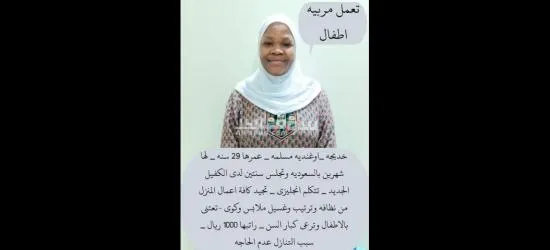 تعمل مربيه
اطفال
خديجه _اوغنديه مسلمه _ عمرها 29 سنه _ لها
شهرين بالسعوديه وتجلس سنتين لدى الكفيل
الجديد _ تتكلم انجليزى _ تجيد كافة اعمال المنزل
من نظافه وترتيب وغسيل ملابس وكوى - تعتنى
بالاطفال وترعى كبار السن _ راتبها 1000 ريال _
سبب التنازل عدم الحاجه